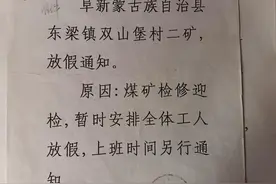 阜新蒙古族自治县
东梁镇双山堡村二矿,
放假通知。
原因:煤矿检修迎
检,暂时安排全体工人
放假,上班时间另行通
知